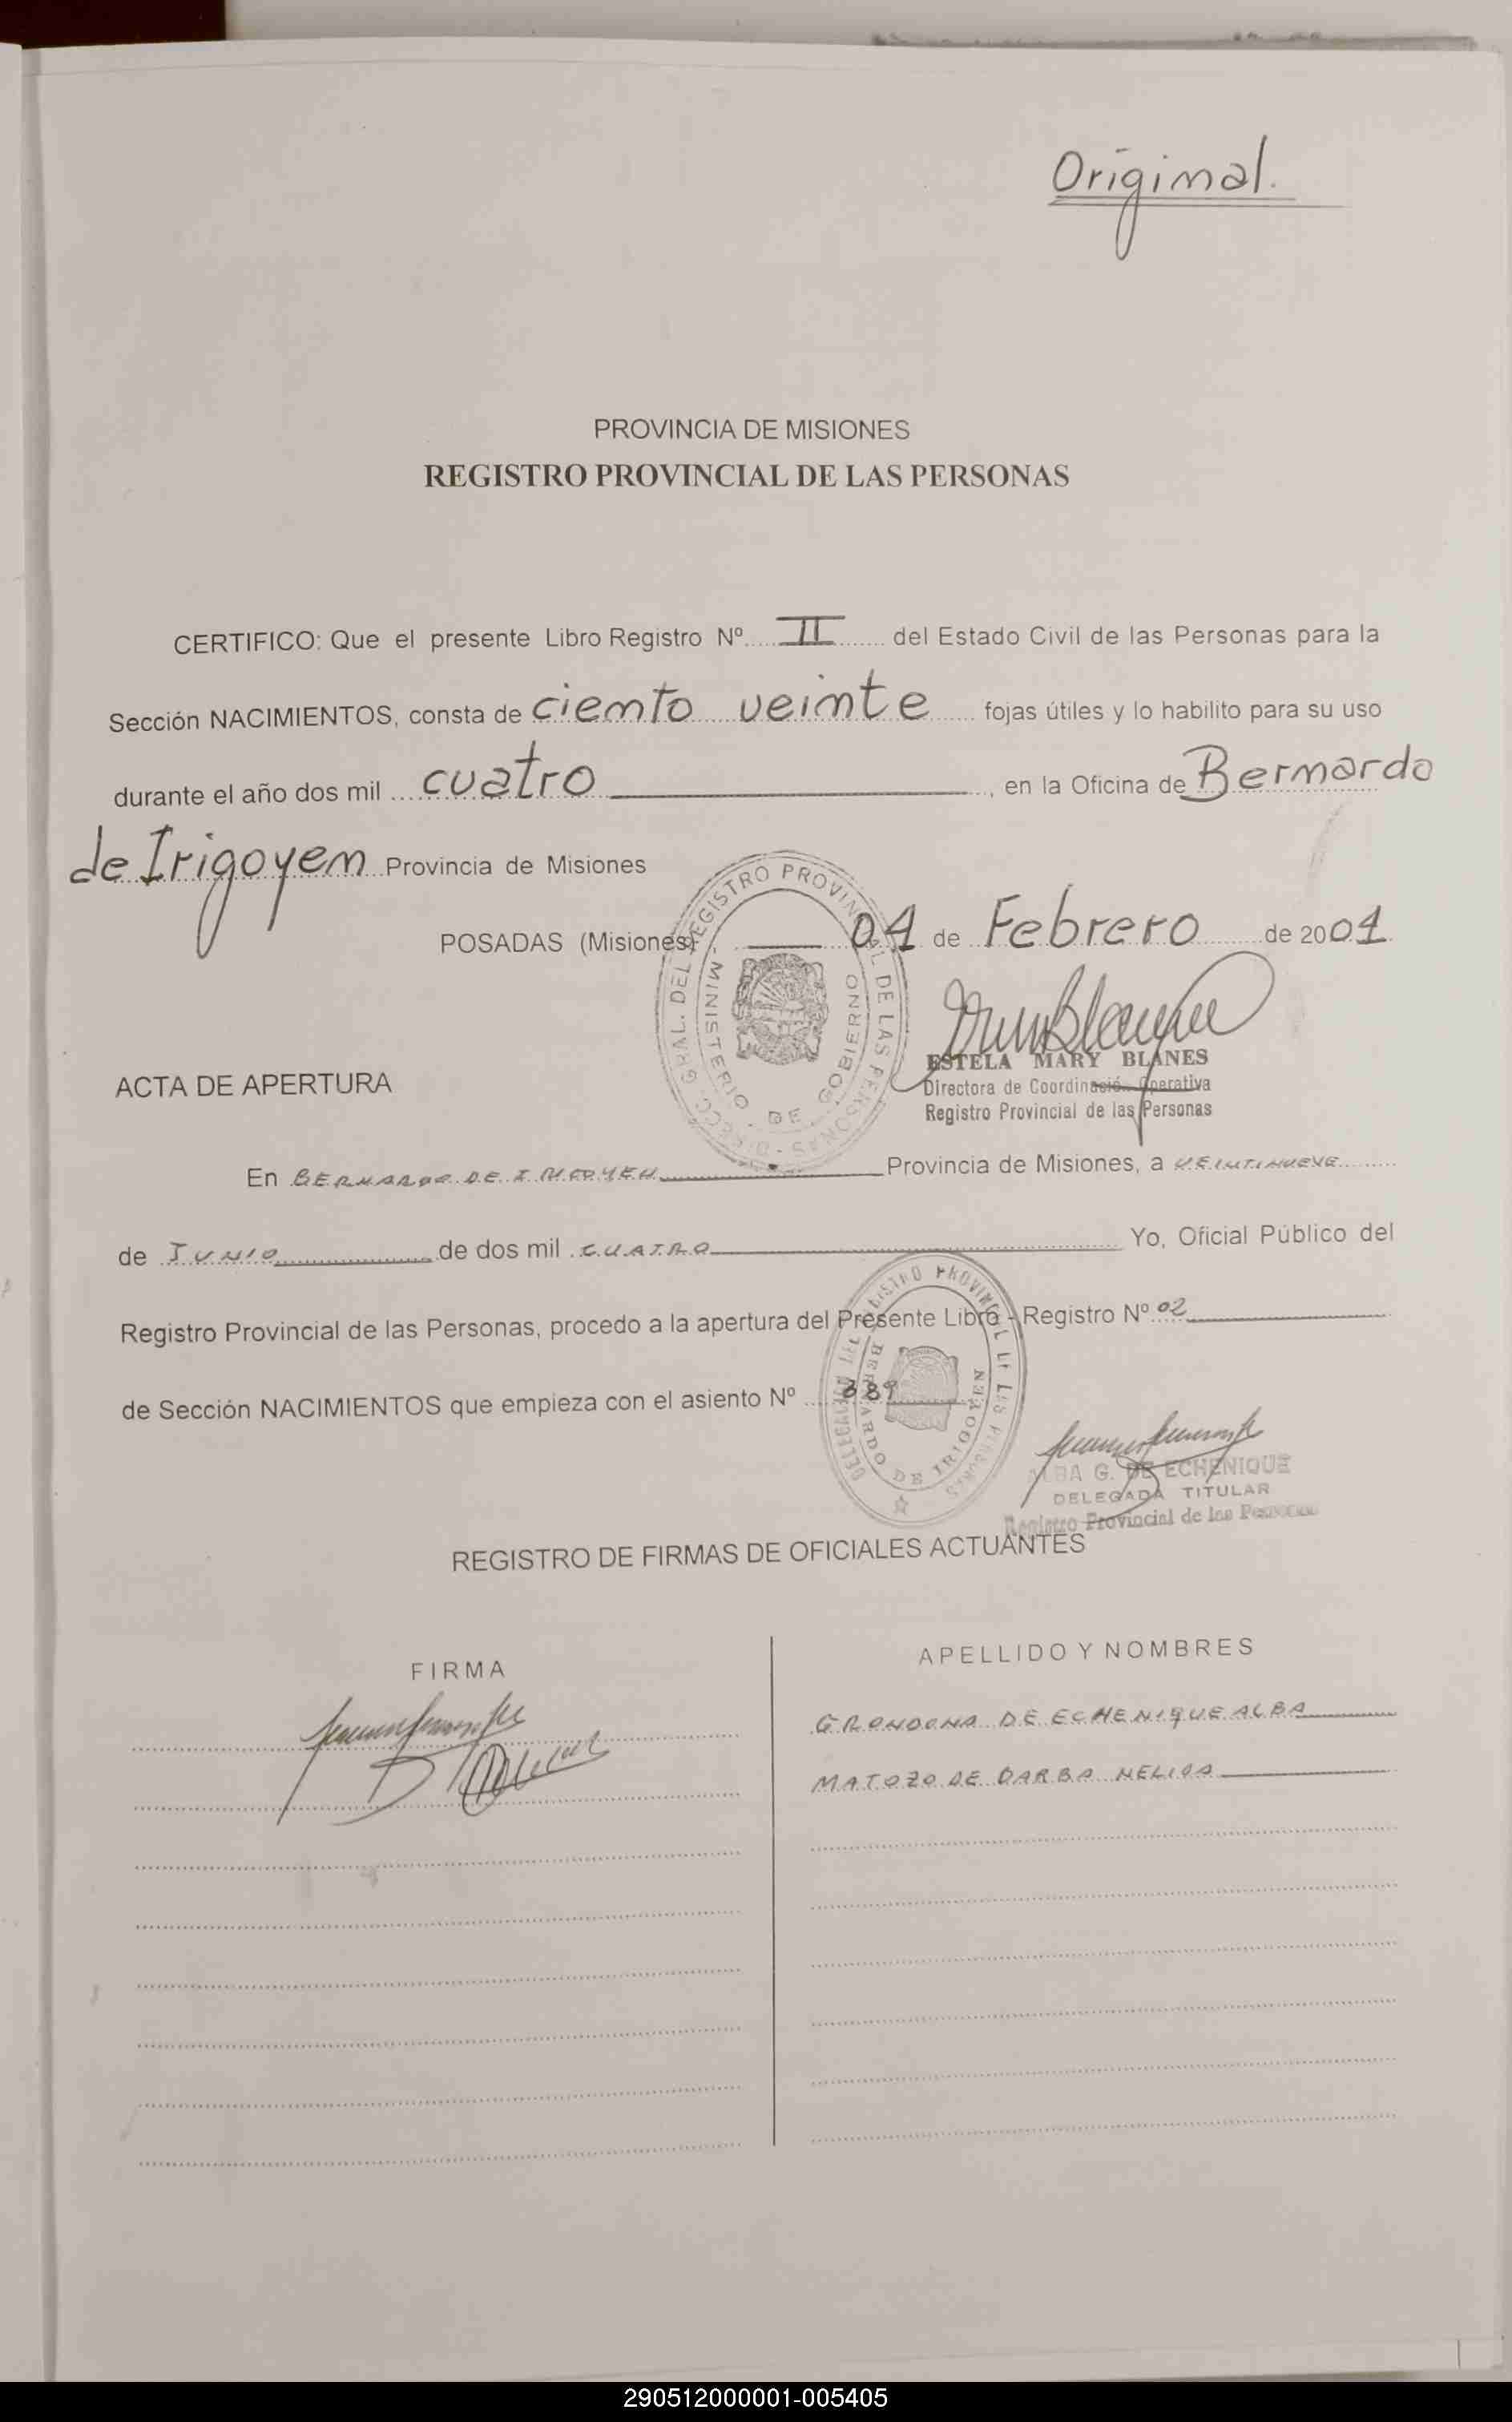 Original.
PROVINCIA DE MISIONES
REGISTRO PROVINCIAL DE LAS PERSONAS
CERTIFICO: Que el presente Libro Registro Nº II del Estado Civil de las Personas para la
Sección NACIMIENTOS, consta de ciento veinte fojas útiles y lo habilito para su uso
durante el año dos mil cuatro, en la Oficina de Bernardo
de Irigoyen Provincia de Misiones
POSADAS (Misiones) 04 de Febrero de 2004
ESTELA MARY BLANES
Directora de Coordinación Operativa
Registro Provincial de las Personas
ACTA DE APERTURA
En BERNARDO DE IRIGOYEN Provincia de Misiones, a VEINTINUEVE
de JUNIO de dos mil CUATRO Yo, Oficial Público del
Registro Provincial de las Personas, procedo a la apertura del Presente Libro - Registro Nº 02
de Sección NACIMIENTOS que empieza con el asiento Nº
ALBA G. DE ECHENIQUE
DELEGADA TITULAR
Registro Provincial de las Personas
REGISTRO DE FIRMAS DE OFICIALES ACTUANTES
FIRMA
APELLIDO Y NOMBRES
GRONDONA DE ECHENIQUE ALBA
MATOZO DE DARBA NELIDA
290512000001-005405